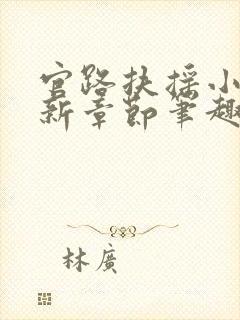 官路扶摇小
新章节笔趣
林廣